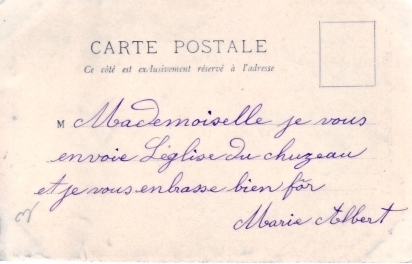 CARTE POSTALE
Ce côté est exclusivement réservé à l'adresse
M Mademoiselle je vous
envoie L'église du chuzeau
et je vous enbrasse bien fôr
Marie Albert